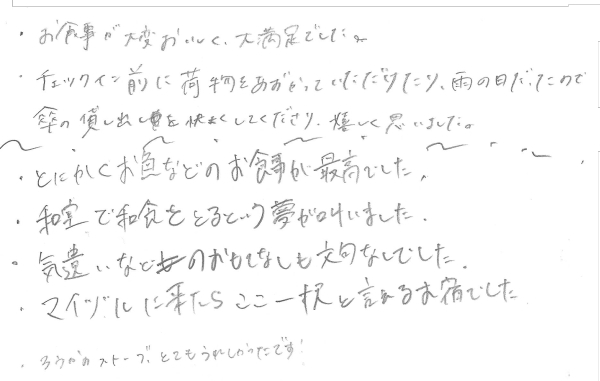 ・お食事が大変おいしく、大満足でした。
・チェックイン前に荷物をあずかっていただけたり、雨の日だったので
傘の貸し出しを快くしてくださり、嬉しく思いました。
・とにかくお魚などのお食事が最高でした。
・和室で和食をとるという夢が叶いました。
・気遣いなどのおもてなしも文句なしでした。
・マイヅルに来たらここ一択と言えるお宿でした
・ろうかのストーブ、とてもうれしかったです!